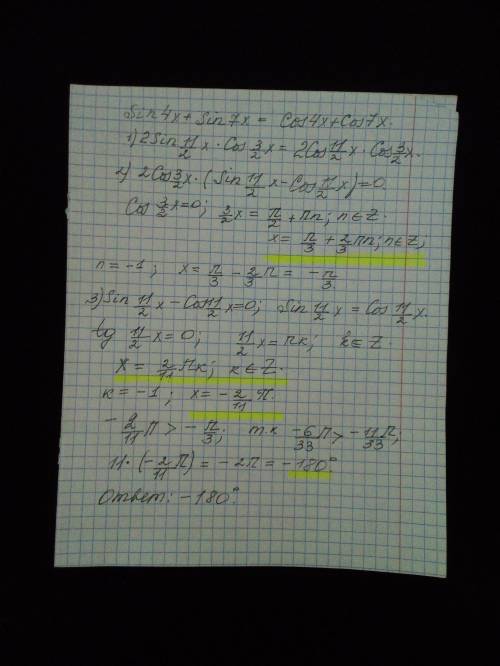 Sin4x + Sin7x = Cos4x + Cos7x.
1) 2Sin 11/2 x · Cos 3/2 x = 2Cos 11/2 x · Cos 3/2 x.
2) 2Cos 3/2 x · (Sin 11/2 x - Cos 11/2 x) = 0.
Cos 3/2 x = 0; 3/2 x = π/2 + πn; n∈Z.
x = π/3 + 2/3 πn; n∈Z;
n = -1; x = π/3 - 2/3 π = -π/3.
3) Sin 11/2 x - Cos 11/2 x = 0; Sin 11/2 x = Cos 11/2 x.
tg 11/2 x = 0; 11/2 x = πк; k∈Z.
X = 2/11 πк; к∈Z.
к = -1; x = -2/11 π.
-2/11 π > -π/3; т.к -6π/33 > -11π/33;
11·(-2/11 π) = -2π = -180°
Ответ: -180°